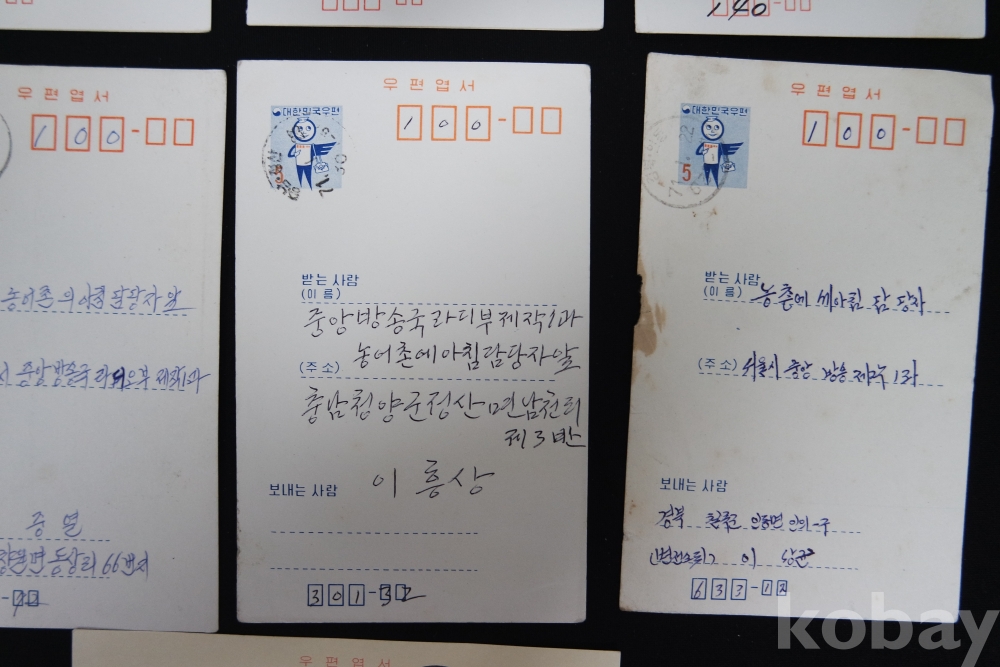 140
우편엽서
100-
농어촌의 아침 담당자 앞
중앙방송국 라디오부 제작1과
종열
동상리 66번지
우편엽서
대한민국우편
71.
30
100-
받는 사람
(이 름)
중앙방송국라디부제작1과
농어촌에아침담당자앞
(주 소)
충남청양군정산면남천리
제3반
보내는 사람
이 흥상
301-32
우편엽서
대한민국우편
5
71.
22
100-
받는 사람
(이 름)
농촌에 세아침 담당자
(주 소)
서울시 중앙 방송 1과
보내는 사람
경북
이
633-12
우편엽서
kobay